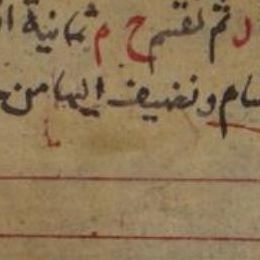 د ثم نقسم ح م ثمانية ا
سام ونضيف إليها من